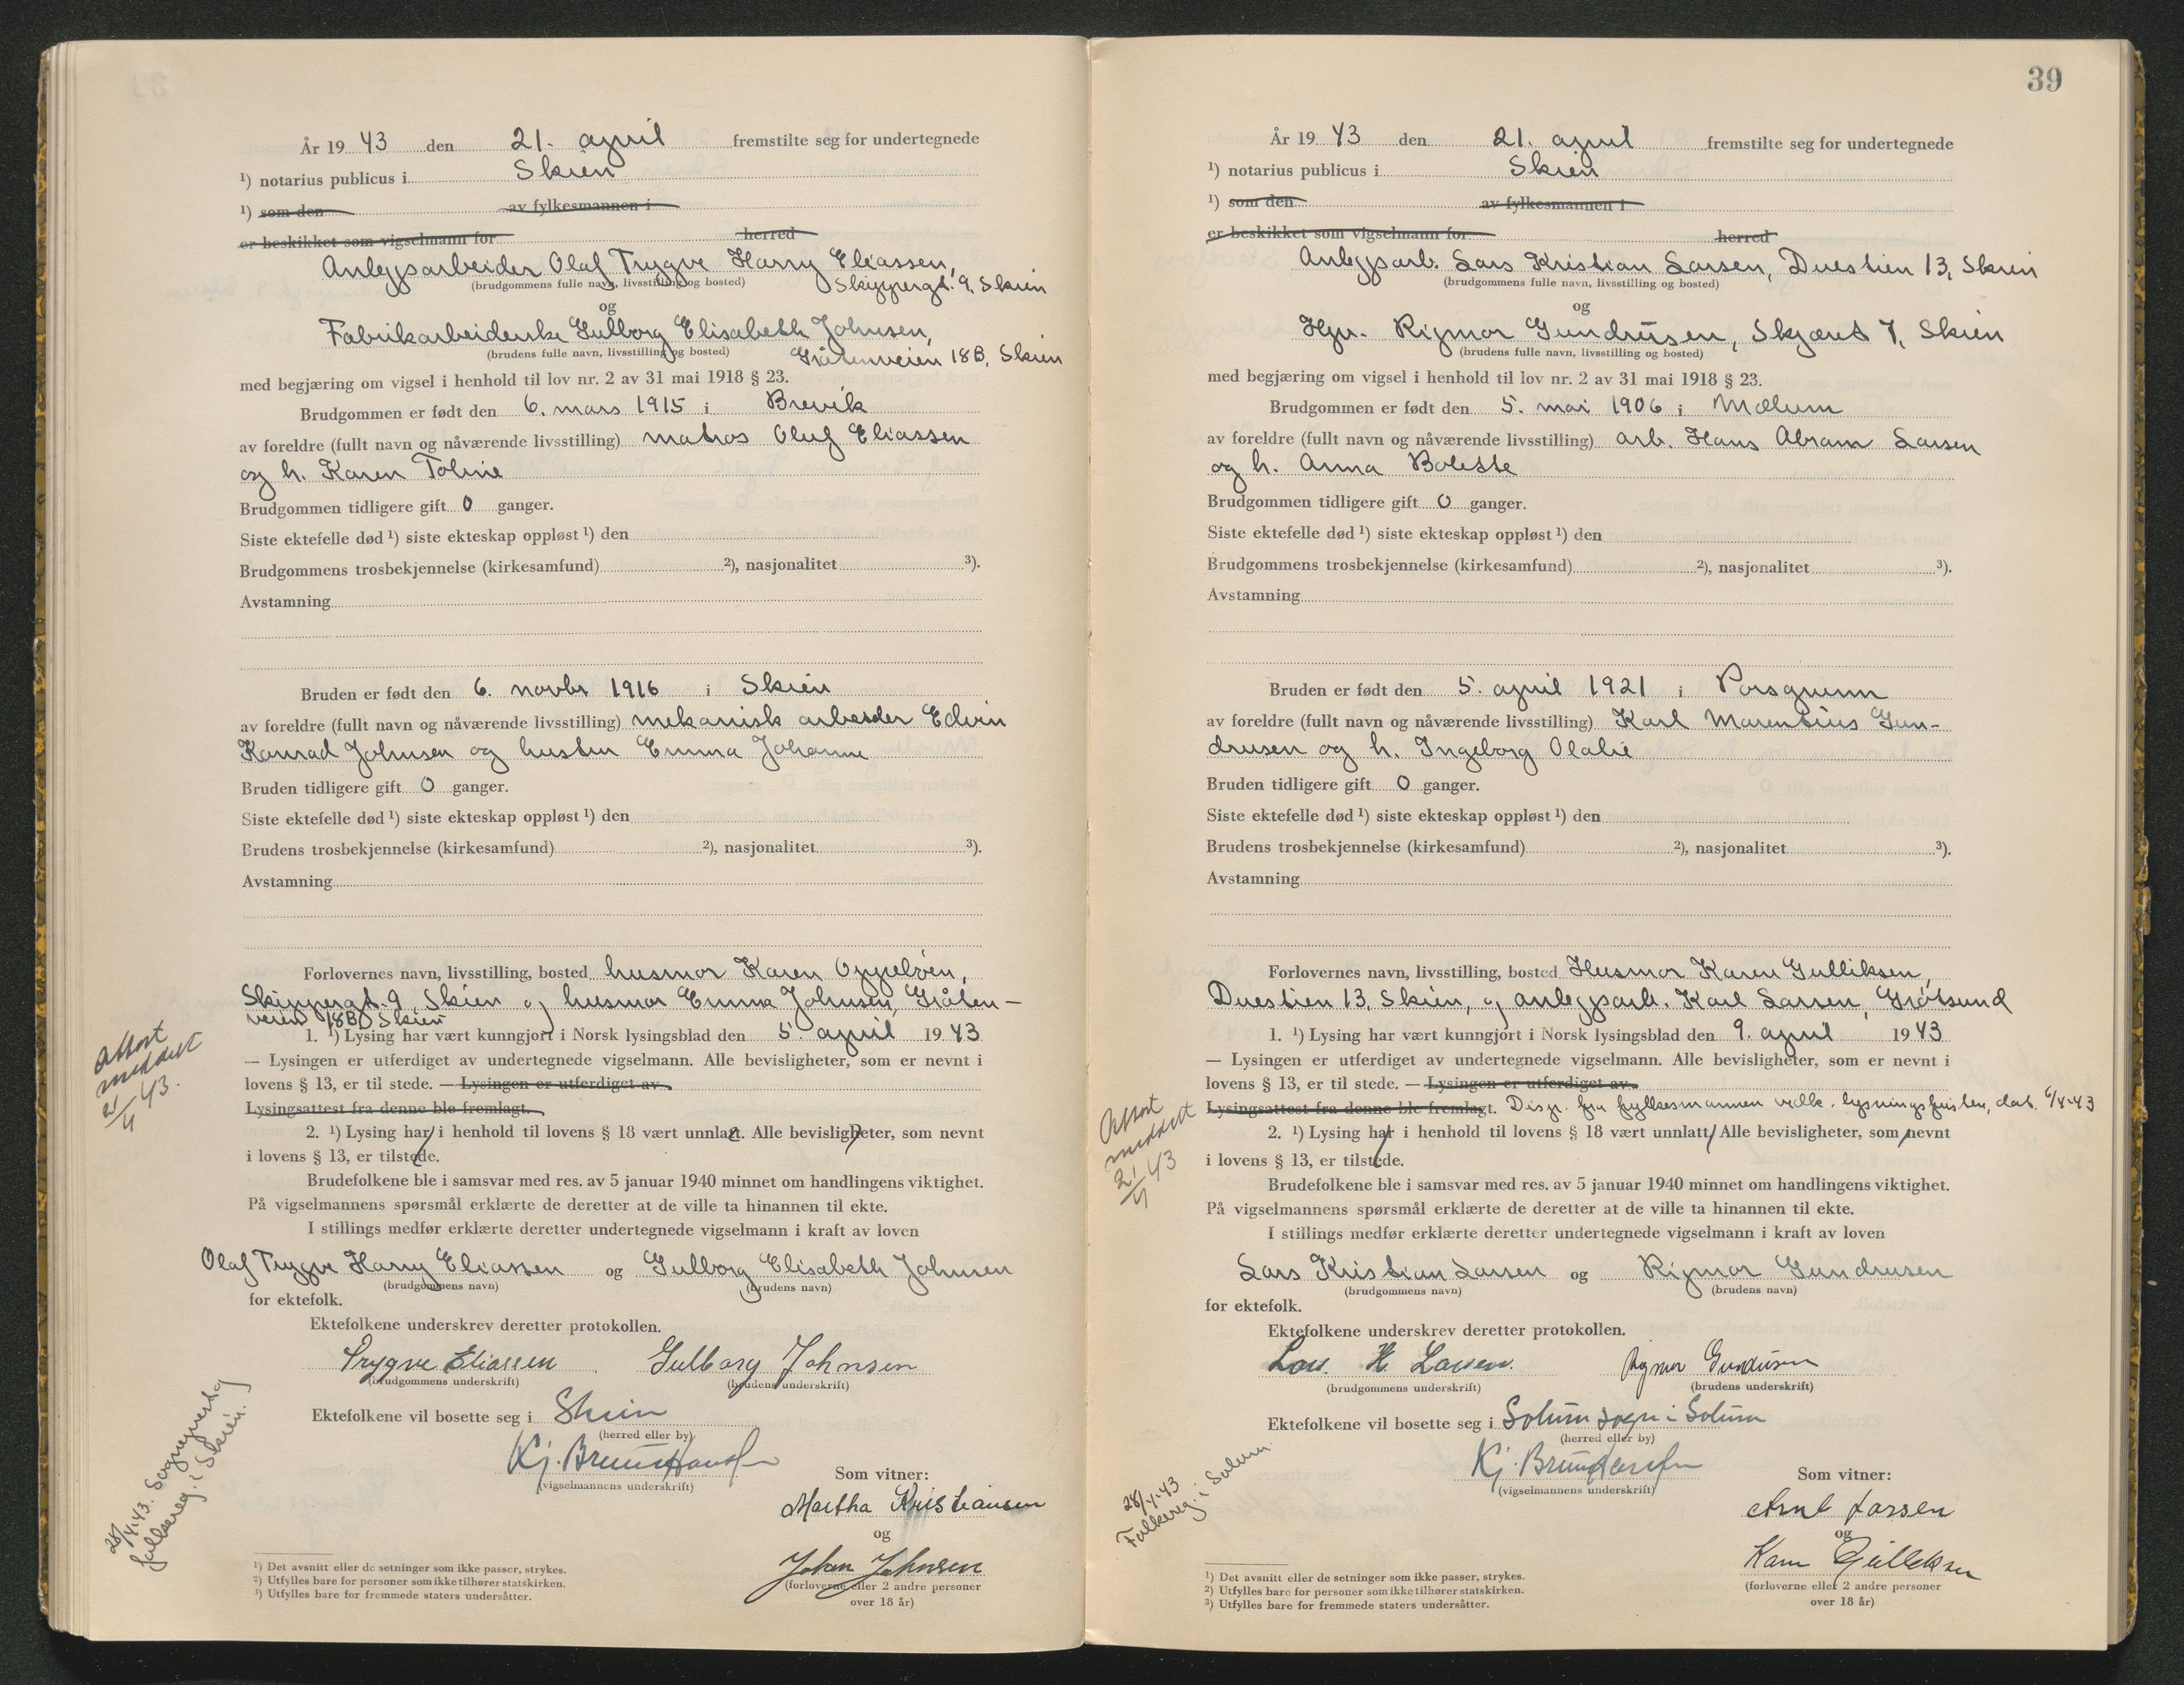 År 19 43 den 21. april fremstilte seg for undertegnede
¹) notarius publicus i Skien
¹) som den av fylkesmannen i
er beskikket som vigselmann for herred
Anleggsarbeider Olaf Trygve Harry Eliassen,
(brudgommens fulle navn, livsstilling og bosted) Skippergt. 9, Skien
og
Fabrikarbeiderske Gulborg Elisabeth Johnsen,
(brudens fulle navn, livsstilling og bosted) Gråtenveien 18B, Skien
med begjæring om vigsel i henhold til lov nr. 2 av 31 mai 1918 § 23.
Brudgommen er født den 6. mars 1915 i Brevik
av foreldre (fullt navn og nåværende livsstilling) matros Oluf Eliassen
og h. Karen Toline
Brudgommen tidligere gift 0 ganger.
Siste ektefelle død ¹) siste ekteskap oppløst ¹) den
Brudgommens trosbekjennelse (kirkesamfund) ²), nasjonalitet ³).
Avstamning
Bruden er født den 6. novbr 1916 i Skien
av foreldre (fullt navn og nåværende livsstilling) mekanisk arbeider Edvin
Konrad Johnsen og hustru Emma Johanne
Bruden tidligere gift 0 ganger.
Siste ektefelle død ¹) siste ekteskap oppløst ¹) den
Brudens trosbekjennelse (kirkesamfund) ²), nasjonalitet ³).
Avstamning
Forlovernes navn, livsstilling, bosted husmor Karen Oppebøen,
Skippergt. 9, Skien og husmor Emma Johnsen, Gråten-
veien 18B, Skien
1. ¹) Lysing har vært kunngjort i Norsk lysingsblad den 5. april 19 43
— Lysingen er utferdiget av undertegnede vigselmann. Alle bevisligheter, som er nevnt i
lovens § 13, er til stede. — Lysingen er utferdiget av
Lysingsattest fra denne ble fremlagt.
2. ¹) Lysing har i henhold til lovens § 18 vært unnlatt. Alle bevisligheter, som nevnt
i lovens § 13, er tilstede.
Brudefolkene ble i samsvar med res. av 5 januar 1940 minnet om handlingens viktighet.
På vigselmannens spørsmål erklærte de deretter at de ville ta hinannen til ekte.
I stillings medfør erklærte deretter undertegnede vigselmann i kraft av loven
Olaf Trygve Harry Eliassen og Gulborg Elisabeth Johnsen
(brudgommens navn) (brudens navn)
for ektefolk.
Ektefolkene underskrev deretter protokollen.
Trygve Eliassen Gulborg Johnsen
(brudgommens underskrift) (brudens underskrift)
Ektefolkene vil bosette seg i Skien
(herred eller by)
Kj. Bruun Hansen
(vigselmannens underskrift)
Som vitner:
Martha Kristiansen
og
Johan Johnsen
(forloverne eller 2 andre personer
over 18 år)
¹) Det avsnitt eller de setninger som ikke passer, strykes.
²) Utfylles bare for personer som ikke tilhører statskirken.
³) Utfylles bare for fremmede staters undersåtter.
Attest
meddelt
21/4 43.
28/4-43. Sogneprest og
folkereg. i Skien.
39
År 19 43 den 21. april fremstilte seg for undertegnede
¹) notarius publicus i Skien
¹) som den av fylkesmannen i
er beskikket som vigselmann for herred
Anleggsarb. Lars Kristian Larsen, Duestien 13, Skien
(brudgommens fulle navn, livsstilling og bosted)
og
Hjv. Rigmor Gundrusen, Skjæret 7, Skien
(brudens fulle navn, livsstilling og bosted)
med begjæring om vigsel i henhold til lov nr. 2 av 31 mai 1918 § 23.
Brudgommen er født den 5. mai 1906 i Mælum
av foreldre (fullt navn og nåværende livsstilling) arb. Hans Abram Larsen
og h. Anna Bolette
Brudgommen tidligere gift 0 ganger.
Siste ektefelle død ¹) siste ekteskap oppløst ¹) den
Brudgommens trosbekjennelse (kirkesamfund) ²), nasjonalitet ³).
Avstamning
Bruden er født den 5. april 1921 i Porsgrunn
av foreldre (fullt navn og nåværende livsstilling) Karl Marentius Gun-
drusen og h. Ingeborg Olalie
Bruden tidligere gift 0 ganger.
Siste ektefelle død ¹) siste ekteskap oppløst ¹) den
Brudens trosbekjennelse (kirkesamfund) ²), nasjonalitet ³).
Avstamning
Forlovernes navn, livsstilling, bosted Husmor Karen Gulliksen,
Duestien 13, Skien, og anleggsarb. Karl Larsen, Grøtsund
1. ¹) Lysing har vært kunngjort i Norsk lysingsblad den 9. april 19 43
— Lysingen er utferdiget av undertegnede vigselmann. Alle bevisligheter, som er nevnt i
lovens § 13, er til stede. — Lysingen er utferdiget av
Lysingsattest fra denne ble fremlagt. Disp. fra fylkesmannen vedk. lysningsfristen, dat. 6/4-43
2. ¹) Lysing har i henhold til lovens § 18 vært unnlatt. Alle bevisligheter, som nevnt
i lovens § 13, er tilstede.
Brudefolkene ble i samsvar med res. av 5 januar 1940 minnet om handlingens viktighet.
På vigselmannens spørsmål erklærte de deretter at de ville ta hinannen til ekte.
I stillings medfør erklærte deretter undertegnede vigselmann i kraft av loven
Lars Kristian Larsen og Rigmor Gundrusen
(brudgommens navn) (brudens navn)
for ektefolk.
Ektefolkene underskrev deretter protokollen.
Lars. H. Larsen. Rigmor Gundrusen
(brudgommens underskrift) (brudens underskrift)
Ektefolkene vil bosette seg i Solum sogn i Solum
(herred eller by)
Kj. Bruun Hansen
(vigselmannens underskrift)
Som vitner:
Arnt Larsen
og
Karen Gulliksen
(forloverne eller 2 andre personer
over 18 år)
¹) Det avsnitt eller de setninger som ikke passer, strykes.
²) Utfylles bare for personer som ikke tilhører statskirken.
³) Utfylles bare for fremmede staters undersåtter.
Attest
meddelt
21/4 43
28/4-43
Folkereg. i Solum